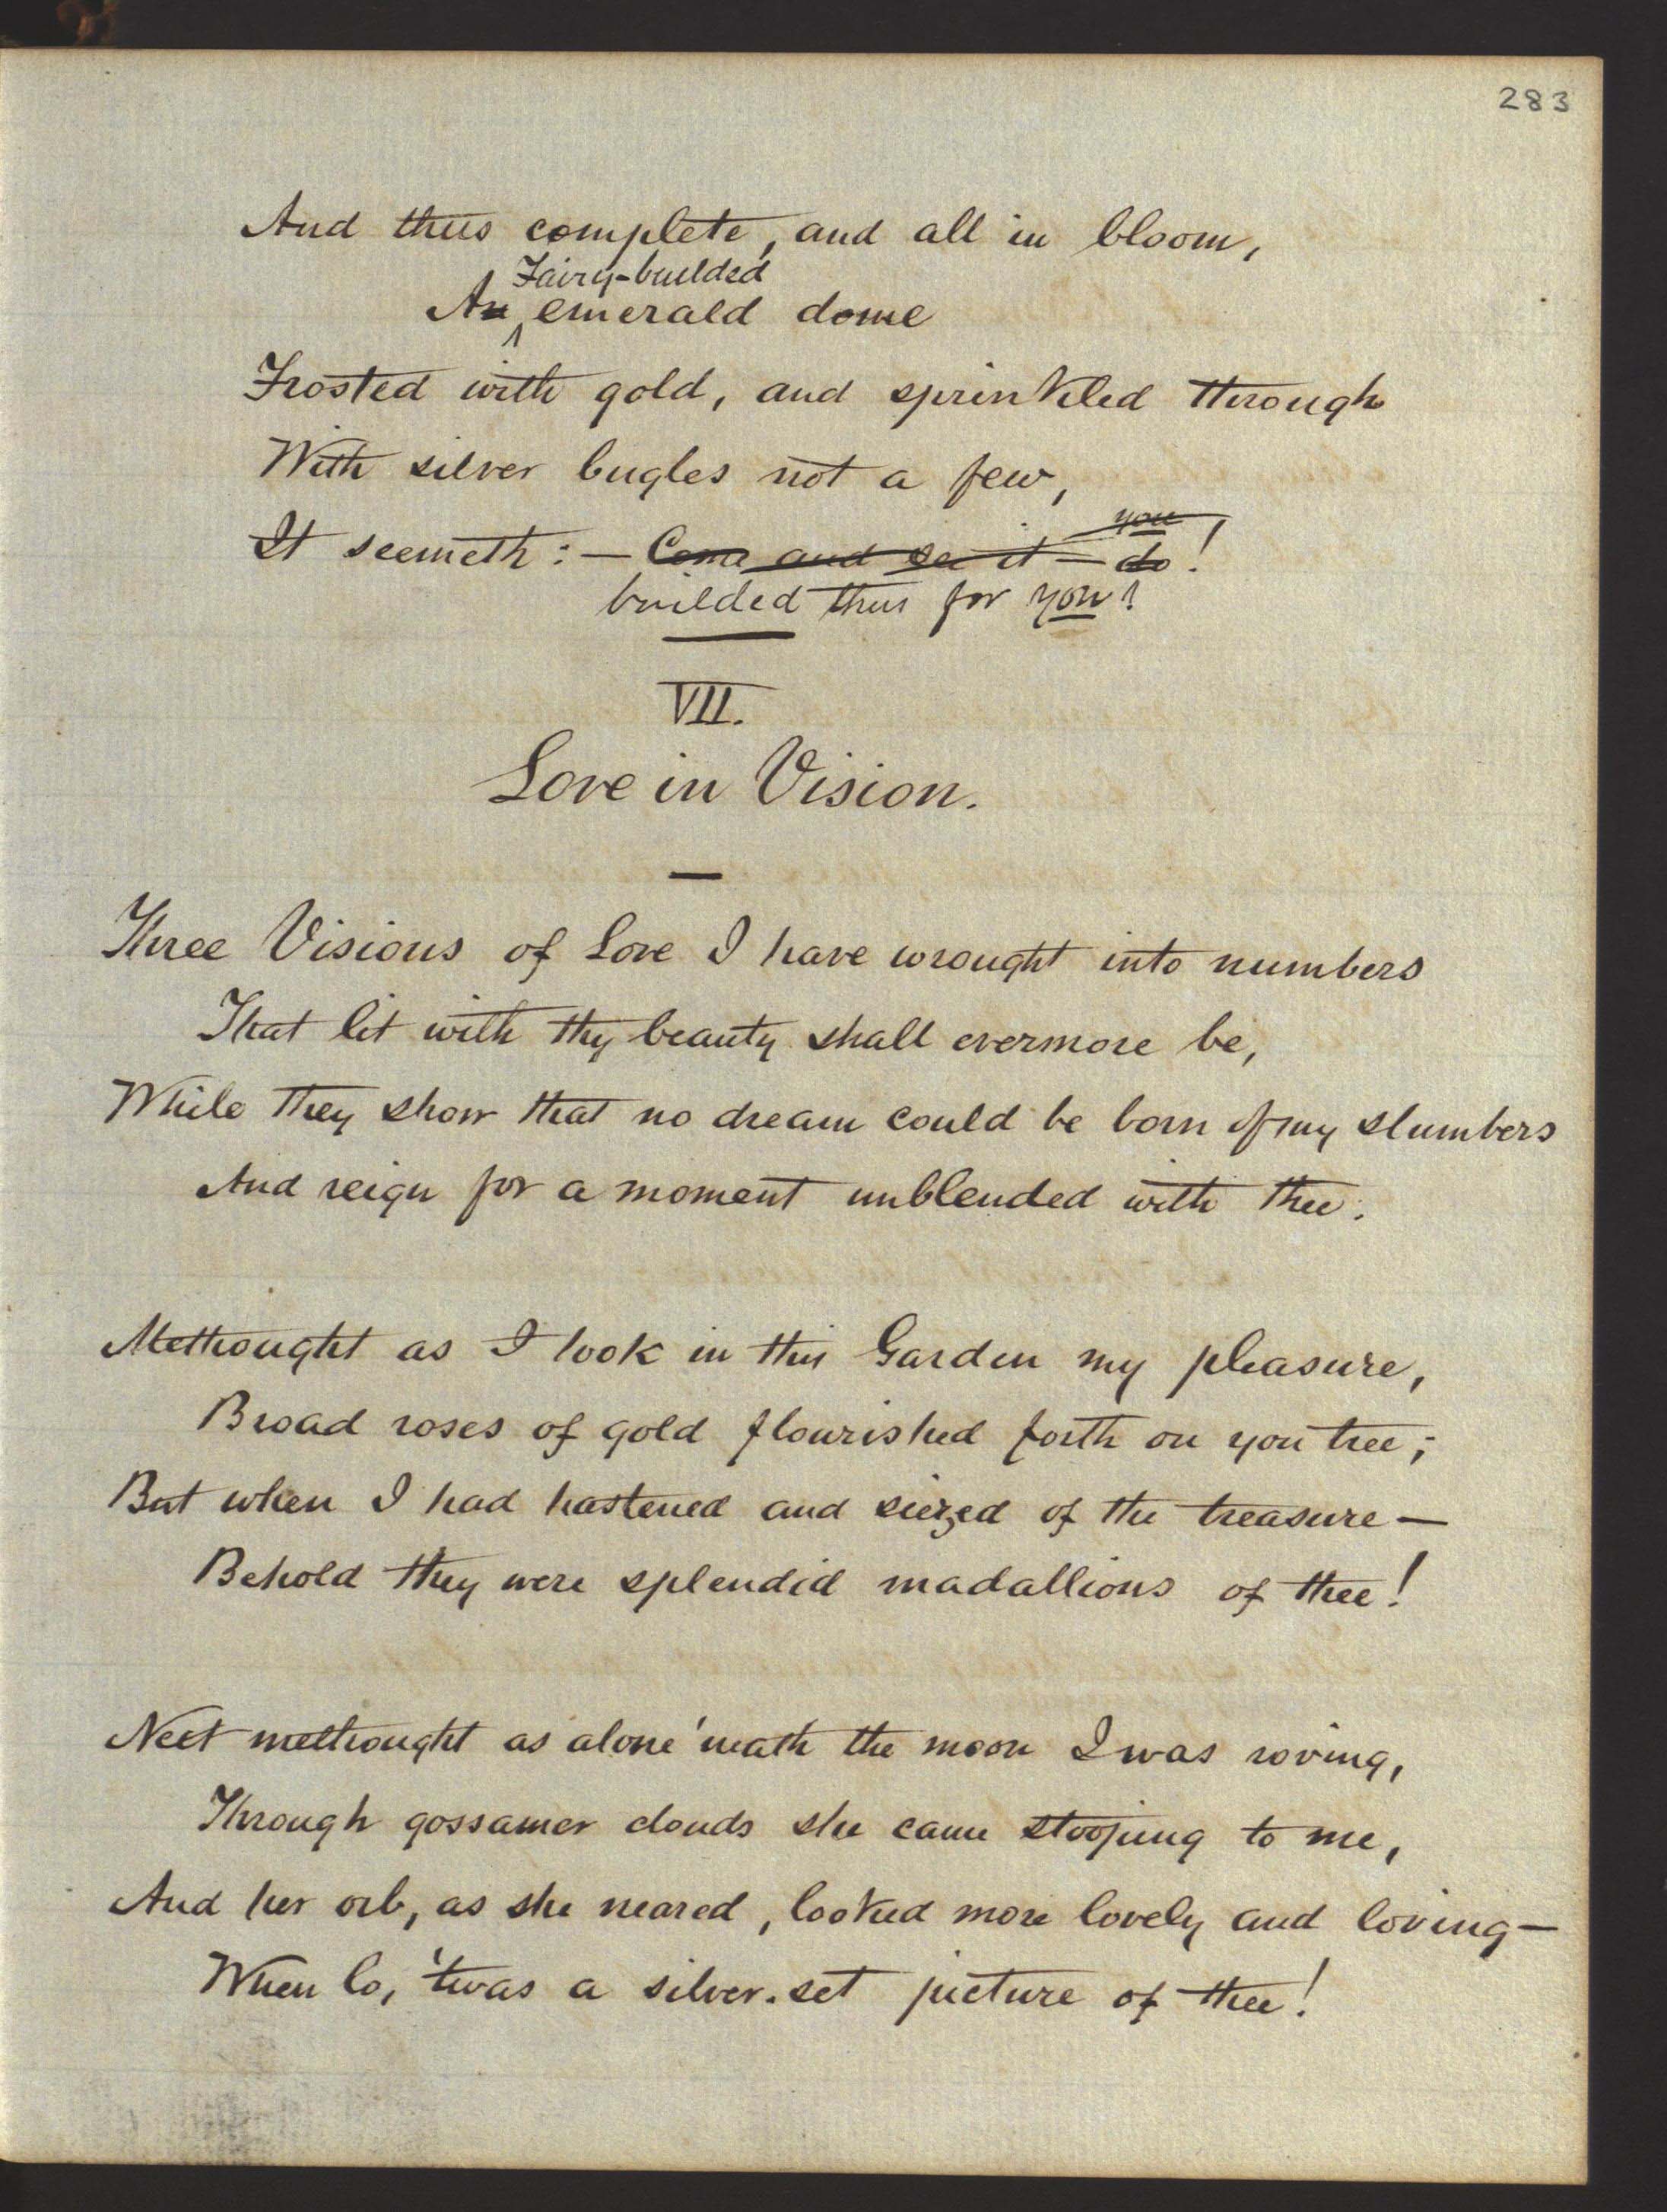 283
And thus complete, and all in bloom,
Fairy-builded
An emerald dome
Frosted with gold, and sprinkled through
With silver bugles not a few,
you
It seemeth:— Come and see it — do!
builded thus for you!
VII.
Love in Vision.
Three Visions of Love I have wrought into numbers
That lit with thy beauty shall evermore be,
While they show that no dream could be born of my slumbers
And reign for a moment unblended with thee.
Methought as I took in this Garden my pleasure,
Broad roses of gold flourished forth on yon tree;
But when I had hastened and siezed of the treasure—
Behold they were splendid madallions of thee!
Next methought as alone 'neath the moon I was roving,
Through gossamer clouds she came stooping to me,
And her orb, as she neared, looked more lovely and loving—
When lo, 'twas a silver-set picture of thee!